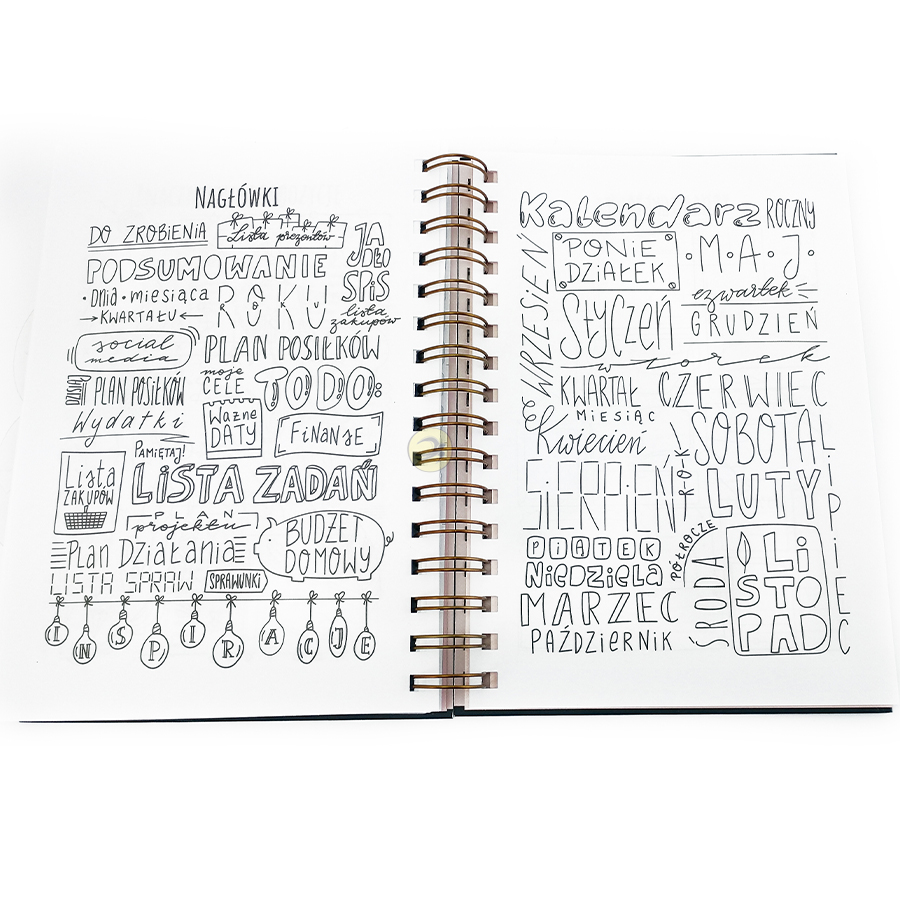 NAGŁÓWKI
DO ZROBIENIA
Lista prezentów
JADŁOSPIS
PODSUMOWANIE
•dnia•miesiąca
→KWARTAŁU←
ROKU
lista zakupów
social media
PLAN POSIŁKÓW
DZISIAJ
PLAN POSIŁKÓW
moje CELE
TO DO:
Wydatki
Ważne DATY
FiNANSE
PAMIĘTAJ!
Lista ZAKUPÓW
LiSTA ZADAŃ
PLAN projektu
BUDŻET DOMOWY
Plan Działania
LISTA SPRAW
SPRAWUNKi
INSPIRACJE
Kalendarz ROCZNY
WRZESIEŃ
PONIEDZIAŁEK
•M•A•J•
STYCZEŃ
czwartek
GRUDZIEŃ
wtorek
KWARTAŁ
CZERWIEC
MIESIĄC
Kwiecień
SOBOTA
LIPIEC
SIERPIEŃ
R•O•K
LUTY
PIĄTEK
PÓŁROCZE
NiEDZiELA
ŚRODA
LiSTOPAD
MARZEC
PAŹDZIERNIK